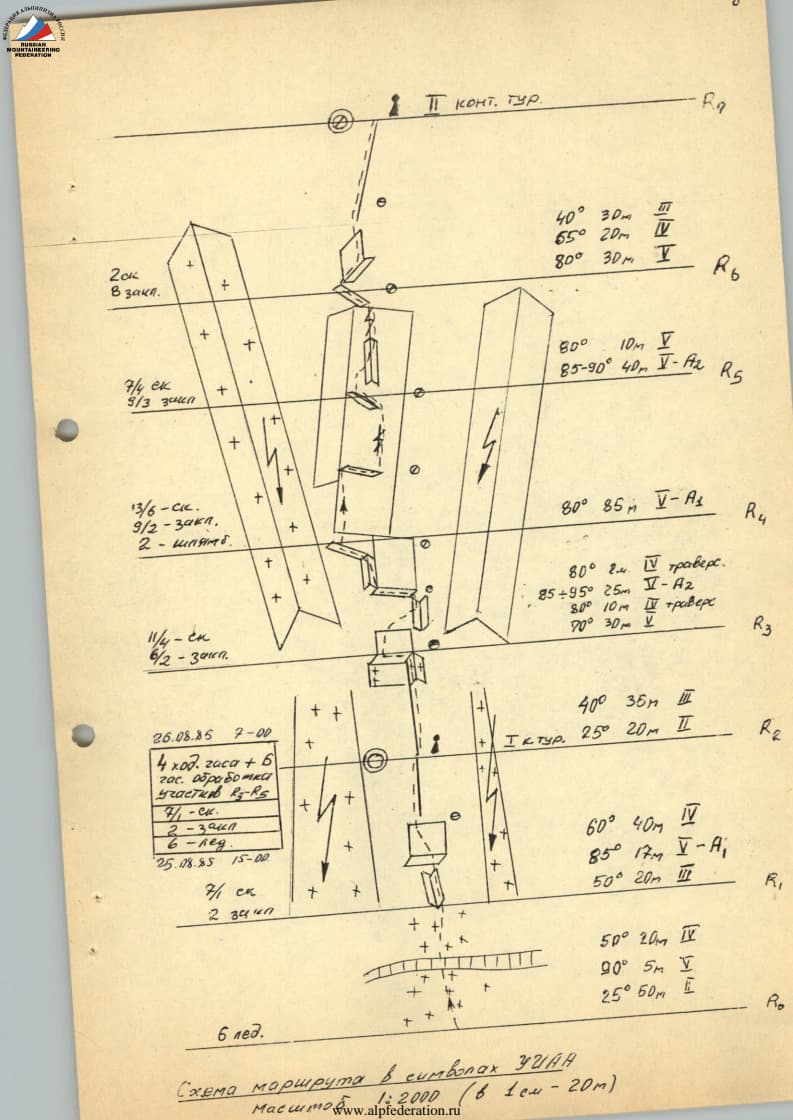 ФЕДЕРАЦИЯ АЛЬПИНИЗМА РОССИИ
RUSSIAN
MOUNTAINEERING
FEDERATION
II КОНТ. ТУР. R7
40° 30м III
65° 20м IV
80° 30м V
2 ск
8 закл. R6
80° 10м V
85-90° 40м V-A2
7/4 ск
9/3 закл R5
13/6-ск.
9/2-закл.
2-шлямб.
80° 85м V-A1
R4
80° 2м. IV траверс.
85÷95° 25м V-A2
80° 10м IV траверс
70° 30м V
11/4-ск
6/2-закл. R3
40° 35м III
I к.тур. 25° 20м II
R2
26.08.85 7-00
4 ход. часа + 6
час. обработка
участков R3-R5
7/1-ск.
2-закл
6-лед.
25.08.85 15-00
60° 40м IV
85° 17м V-A1
50° 20м III
7/1 ск
2 закл R1
50° 20м IV
90° 5м V
25° 50м II
6 лед. R0
Схема маршрута в символах УИАА
масштаб 1:2000 (в 1см-20м)
www.alpfederation.ru